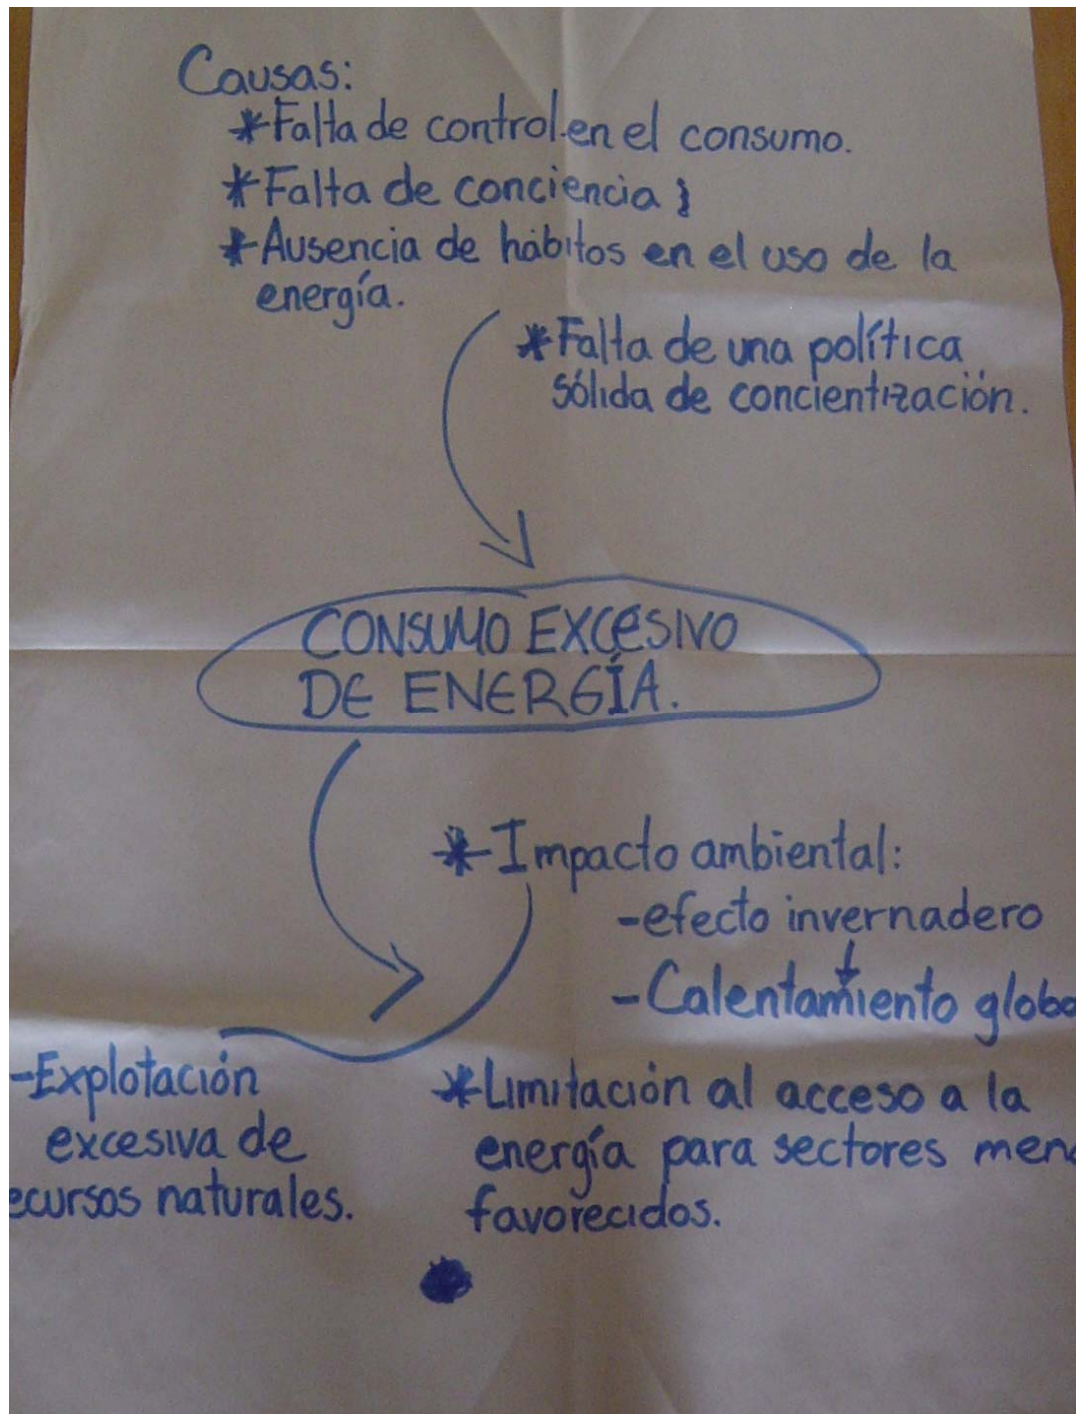 Causas:
*Falta de control en el consumo.
*Falta de conciencia }
*Ausencia de hábitos en el uso de la
energía.
*Falta de una política
sólida de concientización.
CONSUMO EXCESIVO
DE ENERGÍA.
*Impacto ambiental:
-efecto invernadero
-Calentamiento globa
-Explotación
excesiva de
ecursos naturales.
*Limitación al acceso a la
energía para sectores meno
favorecidos.